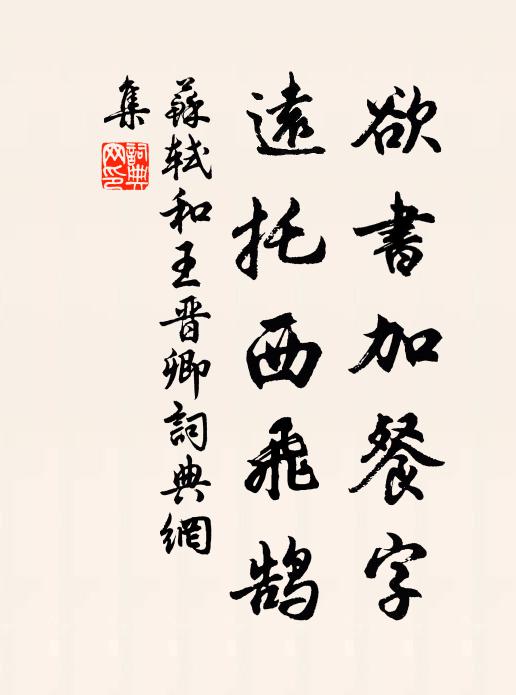 欲書加餐字
遠托西飛鹄
蘇軾和王晋卿詞典網
集
詞典
网印